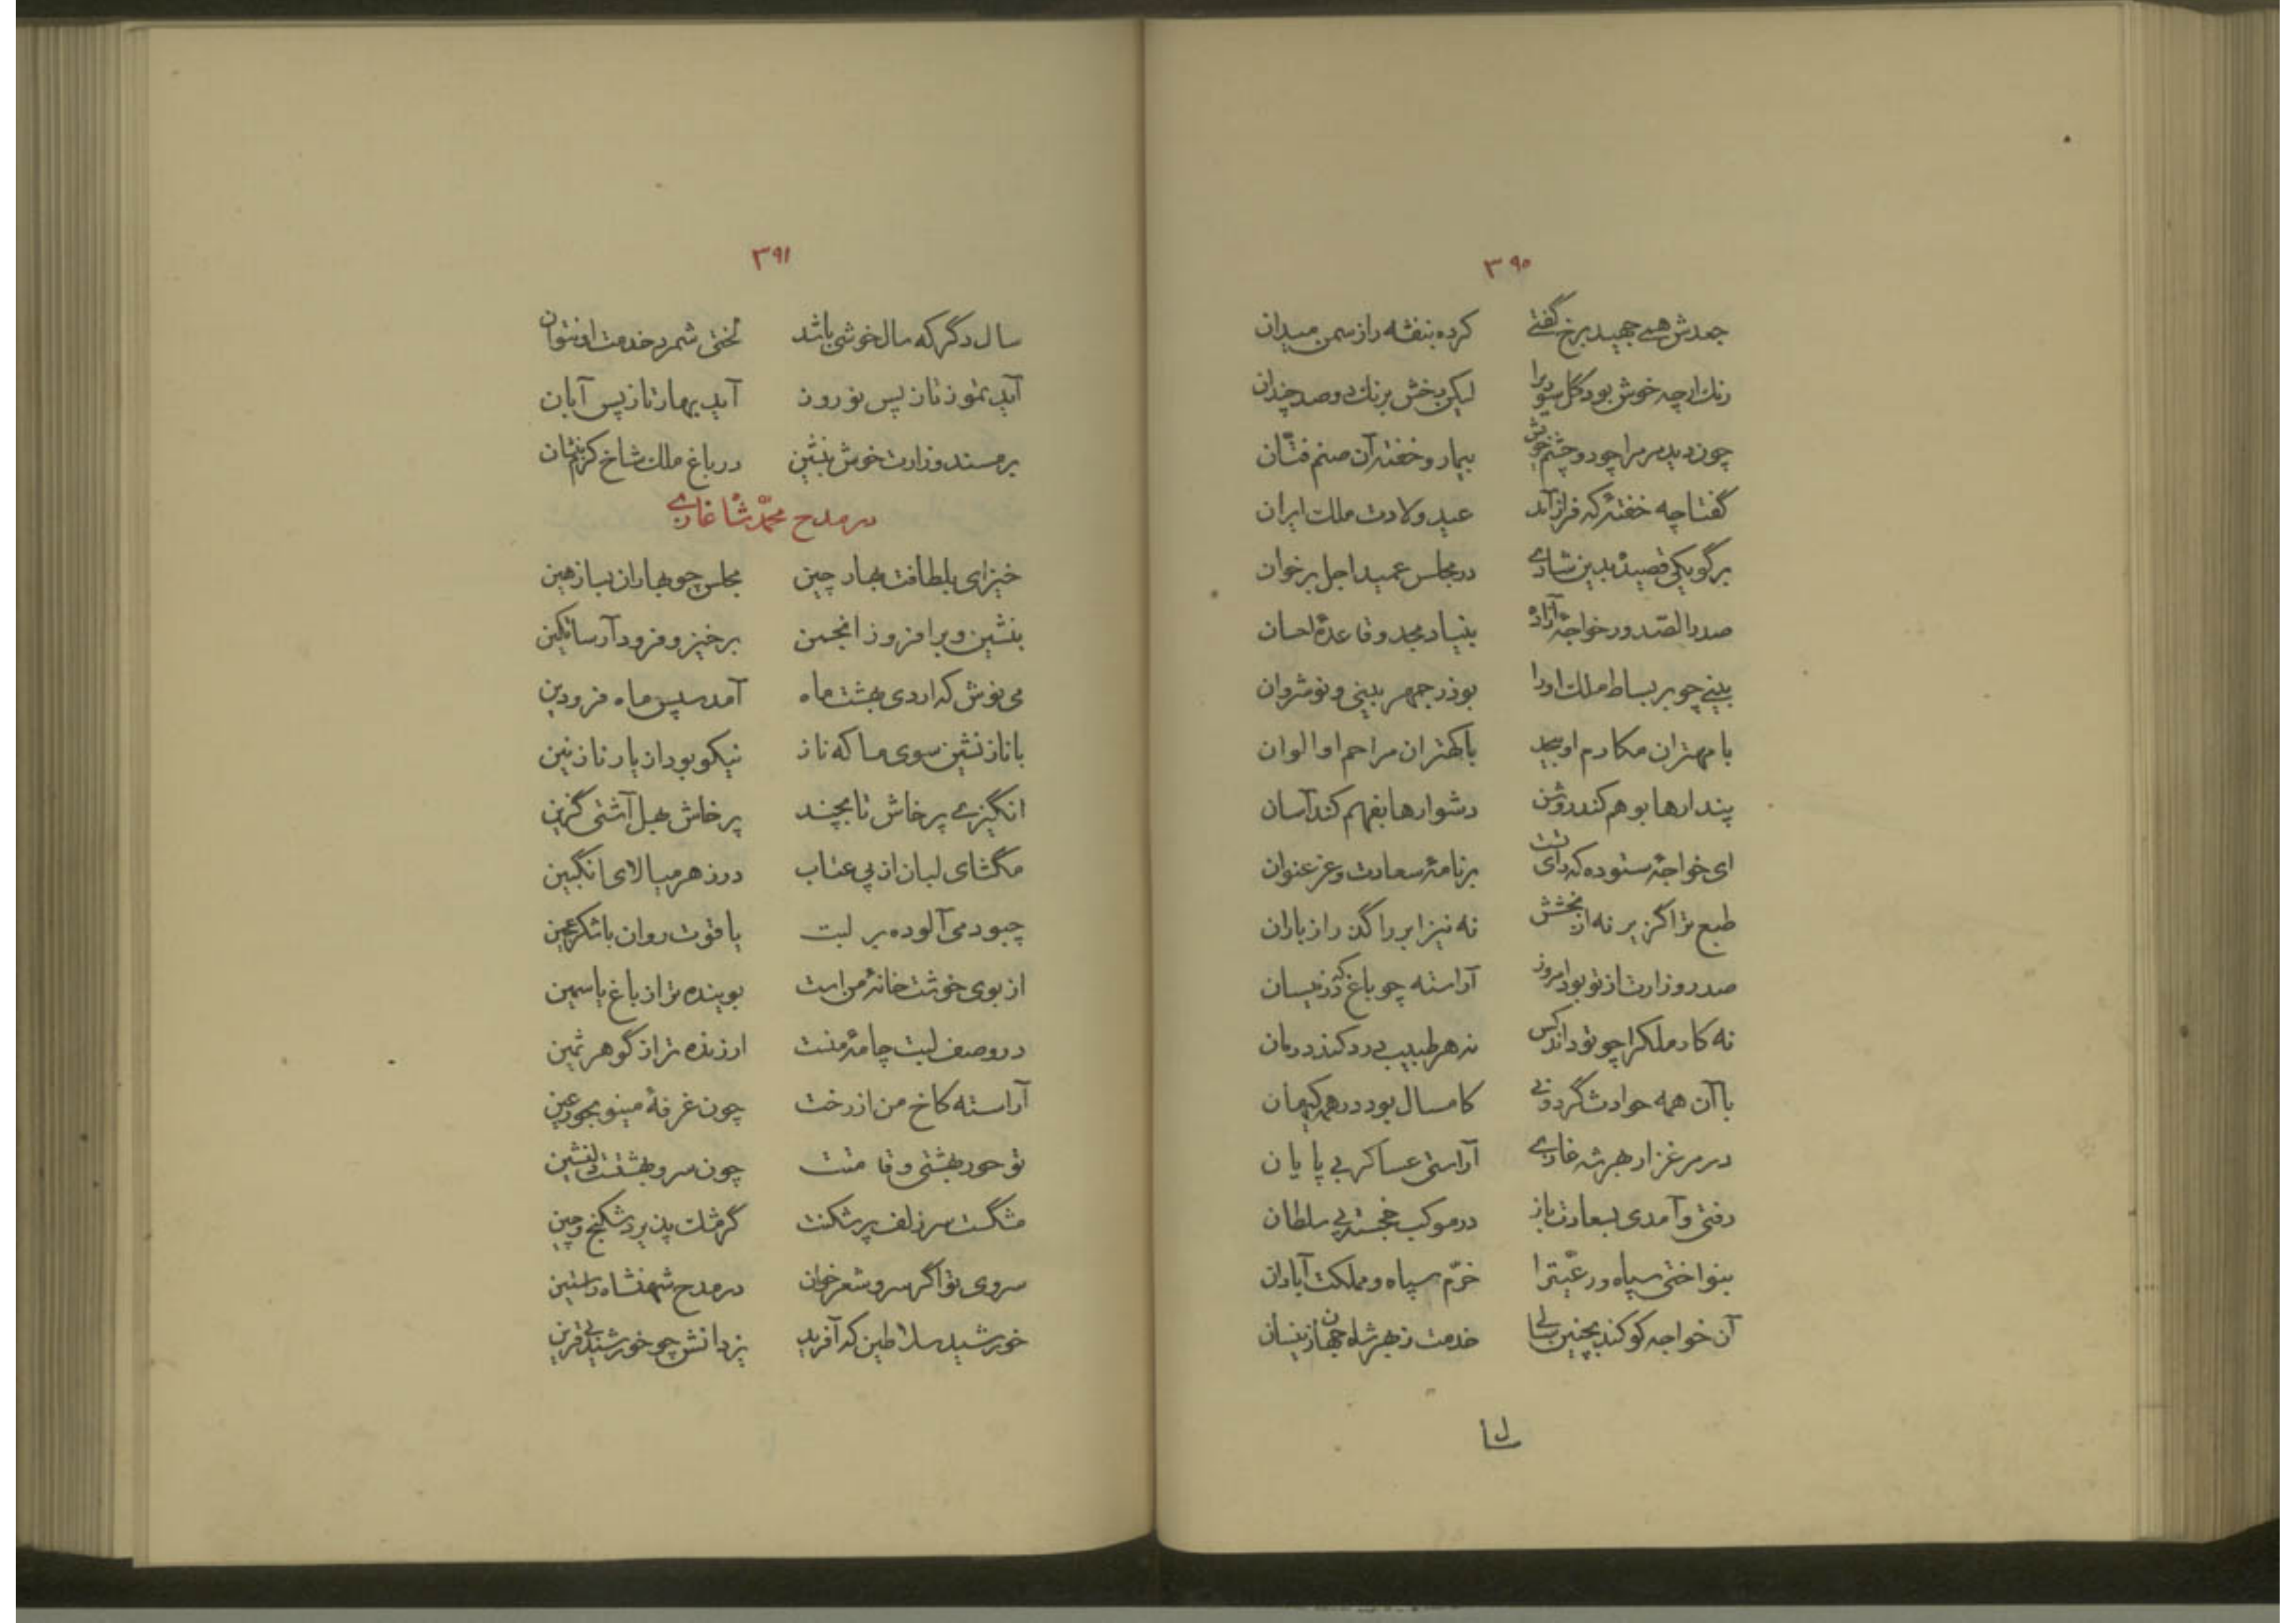 ۳۹۰
جعدش همی جهید برخ گفتی کرده بنفشه را ز سمن میدان
رنك ارچه خوش بود گل سوری را لیکن رخش برنك دو صد چندان
چون دید مر مرا چو دو چشم خویش بیمار و خفته آن صنم فتّان
گفتا چه خفتهٔ که فراز آمد عید ولادت ملك ایران
برگو یکی قصیدهٔ بدین شادی در مجلس عمید اجل برخوان
صدر الصّدور خواجهٔ آزاده بنیاد مجد و قاعدهٔ احسان
بینی چو بر بساط ملك او را بوذرجمهر بینی و نوشروان
با مهتران مکارم او بیحد با کهتران مراحم او الوان
پندارها بوهم کند روشن دشوارها بفهم کند آسان
ای خواجهٔ ستوده که رای تست بر نامهٔ سعادت و عز عنوان
طبع ترا گزیر نه از بخشش نه نیز ابر را گذر از باران
صدر وزارت از تو بود امروز آراسته چو باغ که در نیسان
نه کار ملك را چو تو داند کس نه هر طبیب درد کند درمان
با آن همه حوادث گردونی کامسال بود در همه کیهان
در مرغزار بهر شه غازی آراستی عساکر بی پایان
رفتی و آمدی بسعادت باز در موکب خجسته پی سلطان
بنواختی سپاه و رعیّت را خرّم سپاه و مملکت آبادان
آن خواجه کو کند بچنین سالی خدمت ز بهر شاه جهان زینسان
سال
۳۹۱
سال دگر که سال خوشی باشد لختی شمرد خدمت او نتوان
آید تموز تا ز پس نوروز آید بهار تا ز پس آبان
بر مسند وزارت خوش بنشین در باغ ملك شاخ کرم بنشان
در مدح محمّد شاه غازی
خیز ای بلطافت بهار چین مجلس چو بهاران بیا ز هین
بنشین و برافروز انجمن برخیز و فرود آر ساتکین
می نوش که اردی بهشت ماه آمد سپس ماه فرودین
با ناز نشین سوی ما که ناز نیکو بود از یار نازنین
انگیزی پرخاش تا بچند پرخاش بهل آشتی گزین
مگشای لبان از پی عتاب در زهر میالای انگبین
چبود می آلوده بر لبت یاقوت روان با شکر عجین
از بوی خوشت خانهٔ من است بوینده تر از باغ یاسمین
در وصف لبت چامهٔ منست ارزنده تر از گوهر ثمین
آراسته کاخ من از رخت چون غرفهٔ مینو بحور عین
تو حور بهشتی و قامتت چون سرو بهشتت دلنشین
مشگست سر زلف پر شکنت گر مشك پذیرد شکنج و چین
سروی تو اگر سرو شعر خوان در مدح شهنشاه راستین
خورشید سلاطین که آفرید یزدانش چو خورشید بی قرین